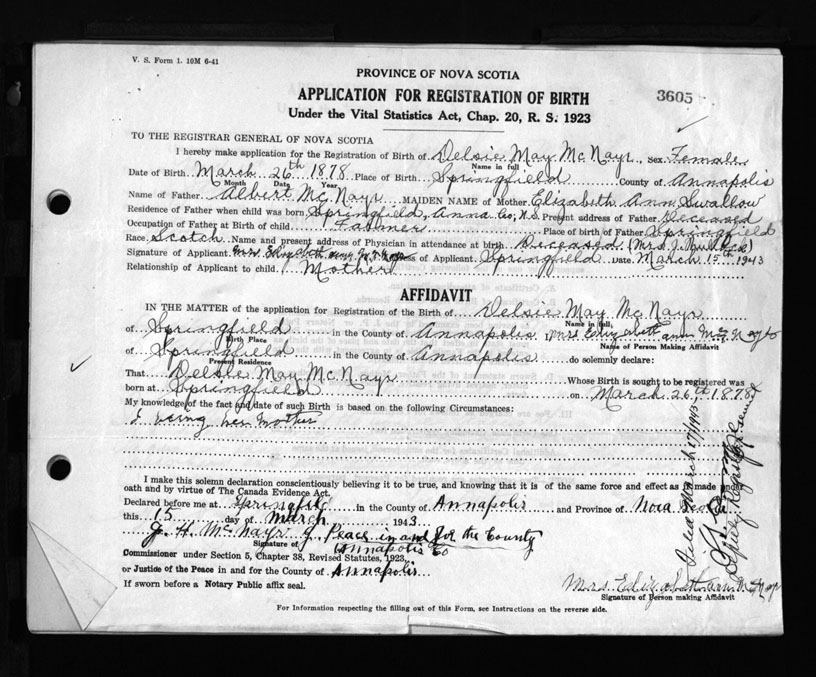 V. S. Form 1. 10M 6-41
PROVINCE OF NOVA SCOTIA
APPLICATION FOR REGISTRATION OF BIRTH
3605
Under the Vital Statistics Act, Chap. 20, R. S. 1923
TO THE REGISTRAR GENERAL OF NOVA SCOTIA
I hereby make application for the Registration of Birth of Delsie May McNayr, sex Female
Name in full
Date of Birth March 26th 1878 Place of Birth Springfield County of Annapolis
Month Date Year
Name of Father Albert McNayr MAIDEN NAME of Mother Elizabeth Ann Swallow
Residence of Father when child was born Springfield, Anna Co; N.S. Present address of Father Deceased
Occupation of Father at Birth of child Farmer Place of birth of Father Springfield
Race Scotch Name and present address of Physician in attendance at birth Deceased (Mrs J.
Signature of Applicant Mrs Elizabeth Ann McNayr Address of Applicant Springfield Date March 15th 1943
Relationship of Applicant to child Mother
AFFIDAVIT
IN THE MATTER of the application for Registration of the Birth of Delsie May McNayr
Name in full
of Springfield in the County of Annapolis, I, Mrs Elizabeth Ann McNayr
Birth Place Name of Person Making Affidavit
of Springfield in the County of Annapolis do solemnly declare:
Present Residence
That Delsie May McNayr Whose Birth is sought to be registered was
born at Springfield on March 26th, 1878
My knowledge of the fact and date of such Birth is based on the following Circumstances:
I being her Mother
I make this solemn declaration conscientiously believing it to be true, and knowing that it is of the same force and effect as if made under
oath and by virtue of The Canada Evidence Act.
Declared before me at Springfield in the County of Annapolis and Province of Nova Scotia
this 15 day of March 1943
J. H. McNayr J. Peace in and for the County
Signature of
Annapolis Co
Commissioner under Section 5, Chapter 38, Revised Statutes, 1923,
or Justice of the Peace in and for the County of Annapolis
If sworn before a Notary Public affix seal.
Mrs. Elizabeth Ann McNayr
Signature of Person making Affidavit
For Information respecting the filling out of this Form, see Instructions on the reverse side.
Filed March 17/1943